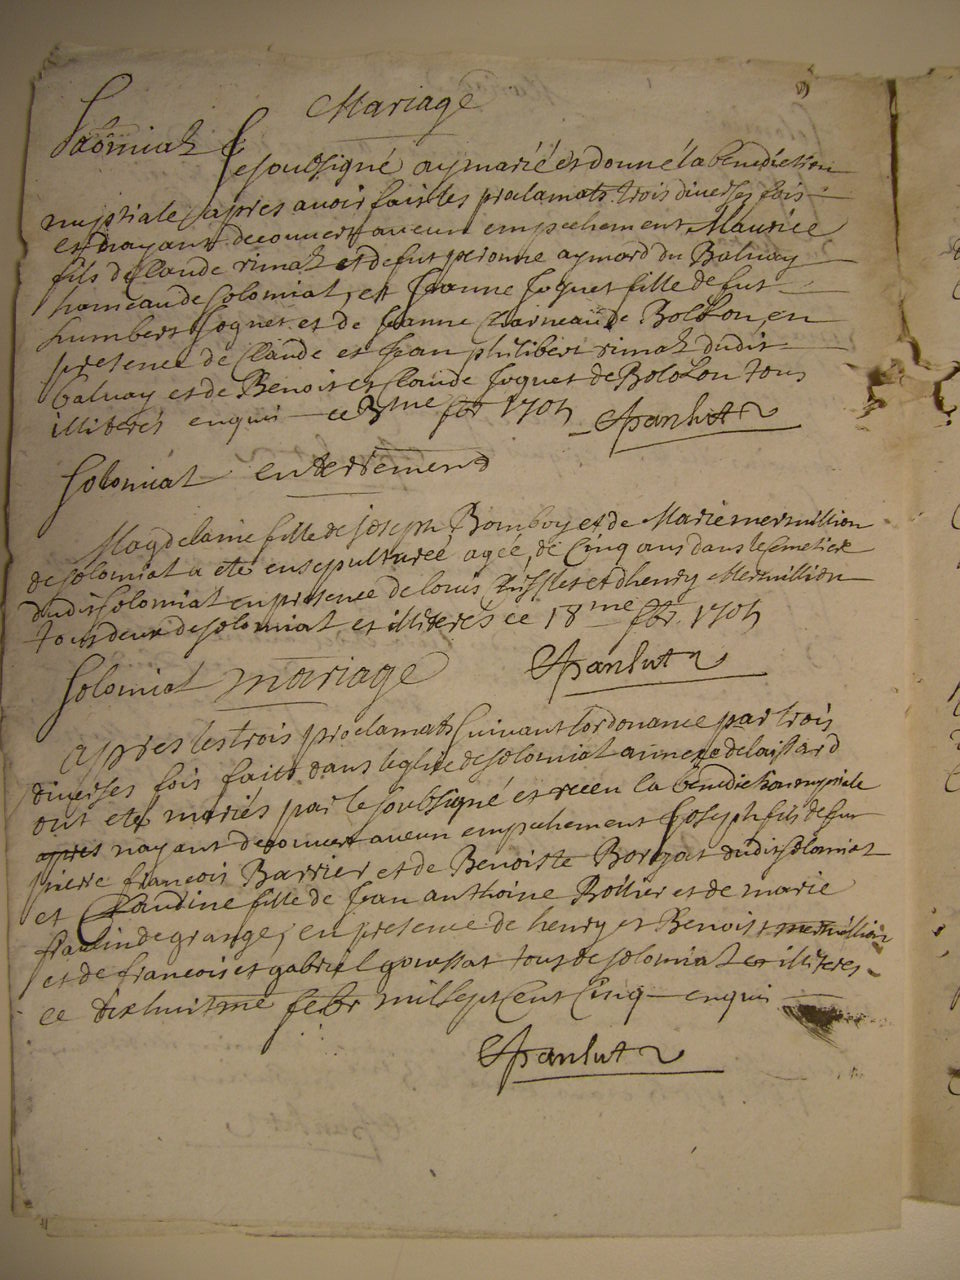 Mariage
Solomiat Je soubsigné ay marié et donné la benediction
nuptiale apres avoir fait les proclamats trois diverses fois
et nayant decouvert aucun empechement Maurice
fils de Claude rimat et de fut peronne aymard du Balvay
hameau de Solomiat, et Jeanne Joguet fille de fut
humbert Joguet et de Jeanne Charneau de Bolozon, en
presence de Claude et Jean philibert rimat dudit
balvay et de Benoit et Claude Joguet de Bolozon tous
illiterés enquis ce 3me fbr 1705
Solomiat enterrement
Magdelaine fille de joseph Bomboy et de Marie mermillion
de solomiat a eté ensepultureé ageé de Cinq ans dans le Cimetiere
dudit Solomiat en presence de louis et dhenry Mermillion
tous deux de solomiat et illiterés ce 18me fbr. 1705
Solomiat mariage
apres les trois proclamats suivant lordonance par trois
diverses fois faits dans leglise de solomiat annexe de laissard
ont eté mariés par le soubsigné et receu la benediction nuptiale
apres nayant decouvert aucun empechement Joseph fils de fut
pierre francois Barrier et de Benoiste dudit solomiat
et Claudine fille de Jean anthoine Bollier et de marie
de grange, en presence de henry et Benoist mermillion
et de francois et gabriel goussat tous de solomiat et illiteres
ce dixhuitme febr mil sept Cent Cinq enquis